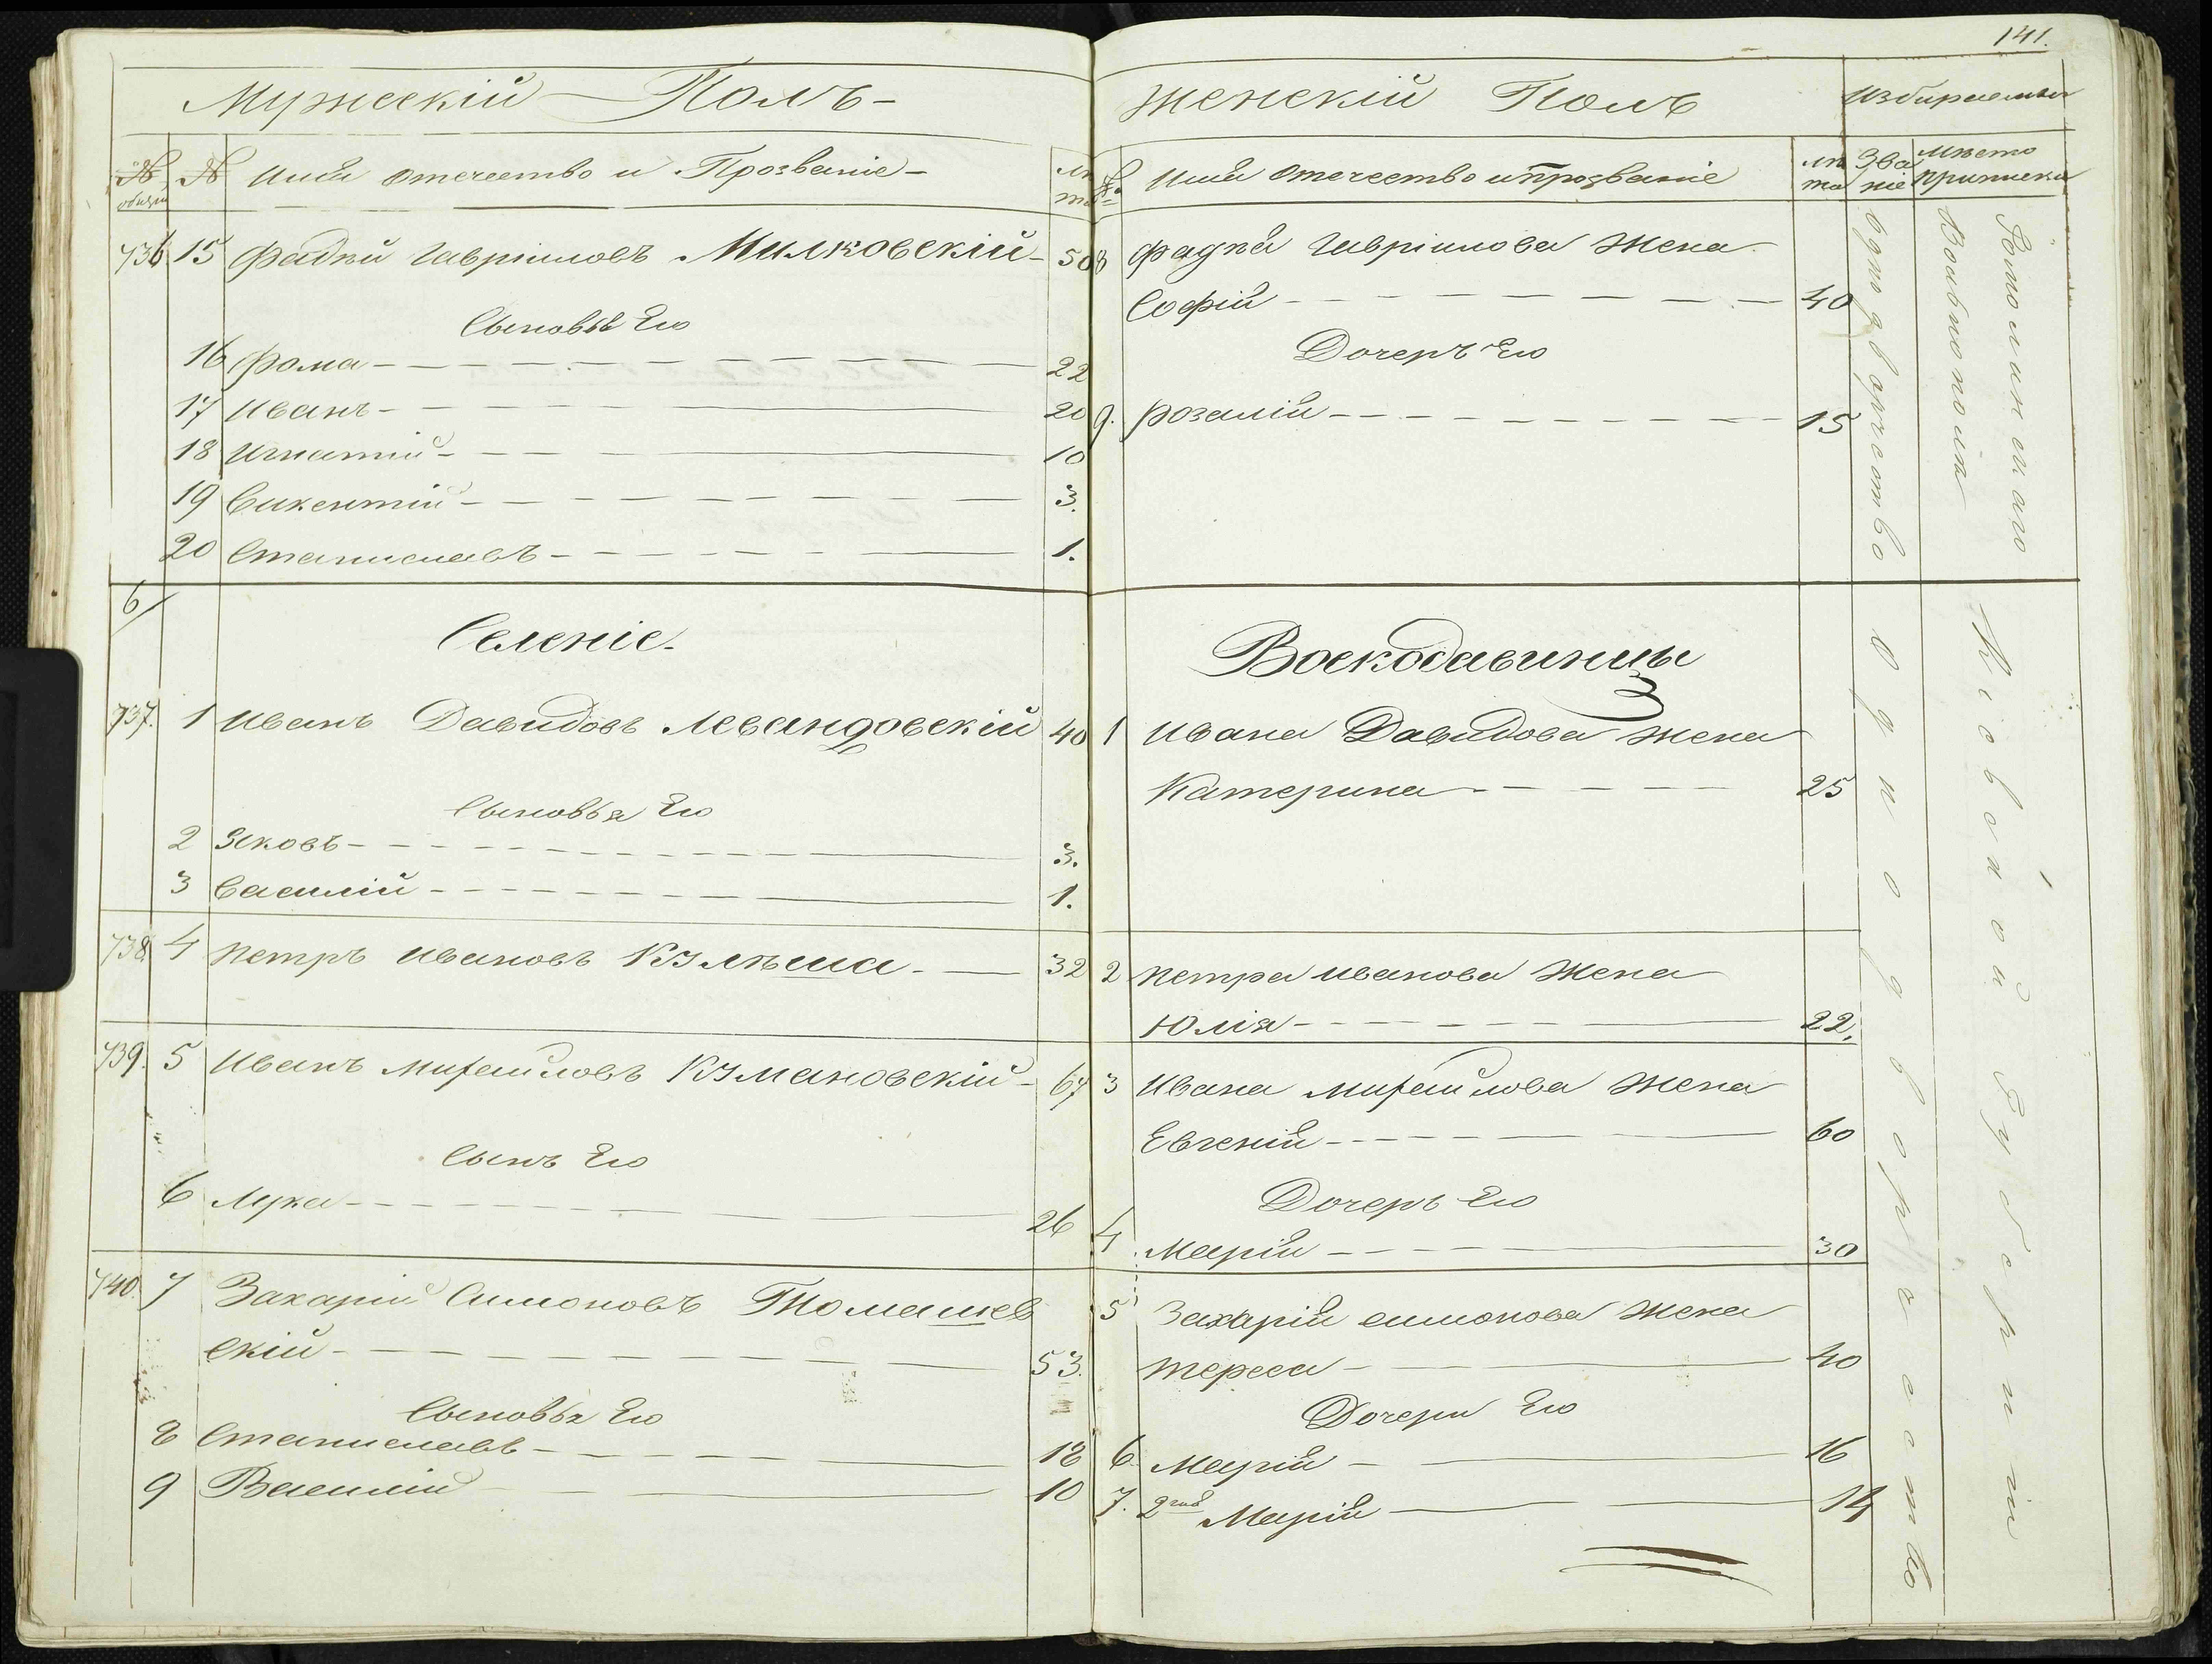 141.
Мужескій Полъ
№ общій № Имя отечество и Прозваніе лѣта
736 15 Фадѣй Гавріиловъ Милковскій 50
Сыновья Его
16 Фома 22
17 Иванъ 20
18 Игнатій 10
19 Викентій 3.
20 Станиславъ 1.
6/
Селеніе
737. 1 Иванъ Давидовъ Левандовскій 40
Сыновья Его
2 Яковъ 3.
3 Василій 1.
738 4 Петръ Ивановъ 32
739. 5 Иванъ Михайловъ 67
Сынъ Его
6 Лука 26
740. 7 Захарій Симоновъ Томашев
скій 53.
Сыновья Его
8 Станиславъ 18
9 Василій 10
Женскій Полъ
Избираемыя
№ Имя отечество и прозваніе лѣта Званіе Мѣсто приписки
8 Фадѣя Гавріилова Жена
Софія 40
Дочерь Его
9. Розалія 15
1 Ивана Давидова Жена
Катерина 25
2 Петра Иванова Жена
Юлія 22.
3 Ивана Михайлова Жена
Евгенія 60
Дочерь Его
4 Марія 30
5 Захарія Симонова Жена
Тереса 40
Дочери Его
6 Марія 16
7. 2гая Марія 14
Однодворчество
Вольнополѣ
Однодворчество
Кіевской Губерніи